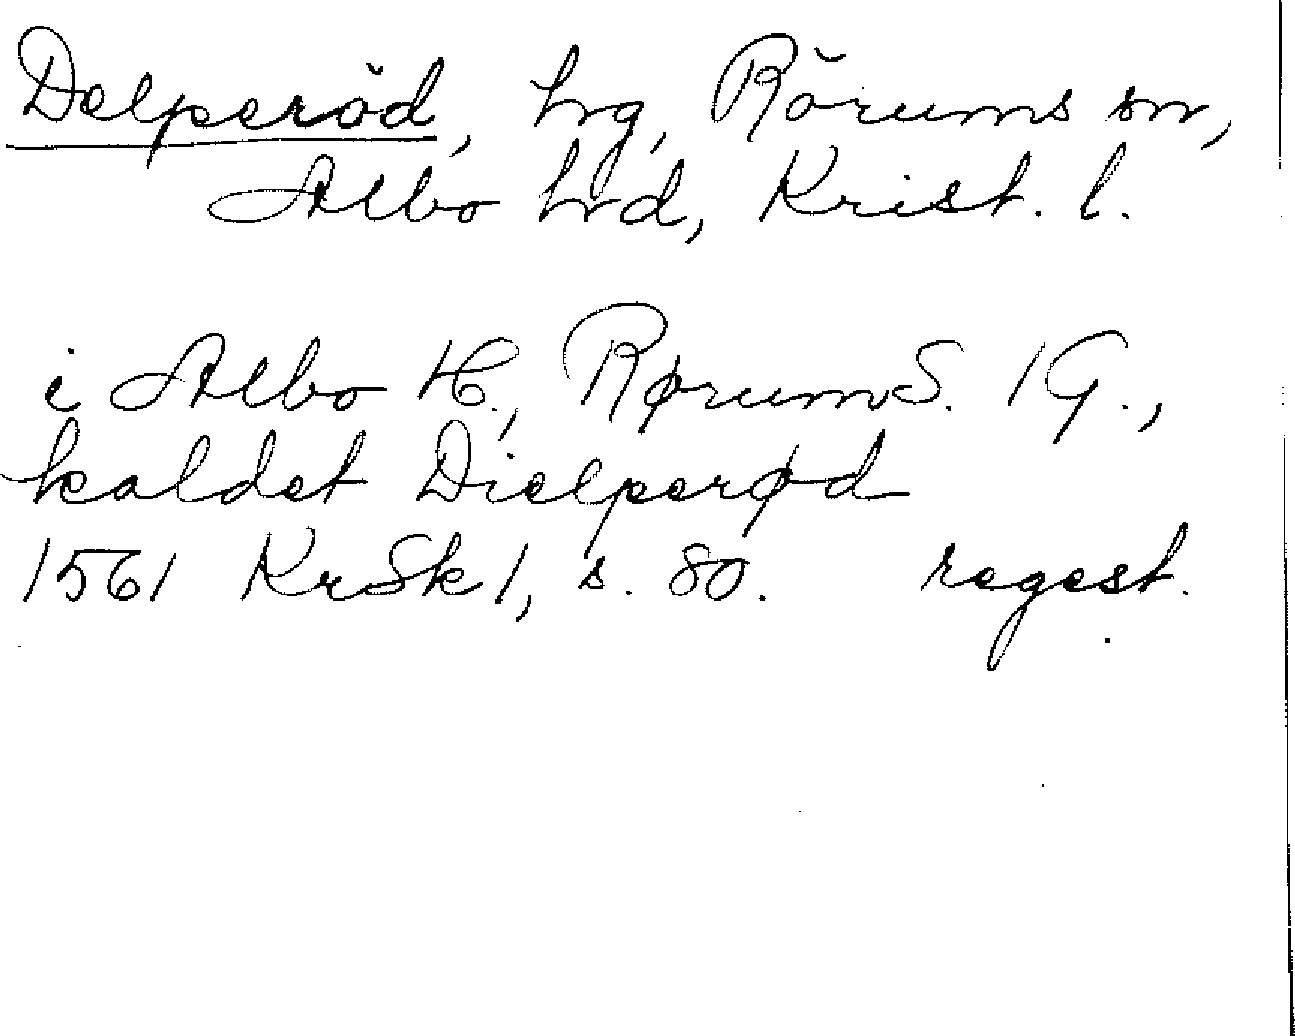 Delperöd, hg, Rörums sn,
Albo hd, Krist. l.
i Albo H., Rørum S. 1 G.,
kaldet Dielperød
1561 KrSk 1, s. 80. regest.